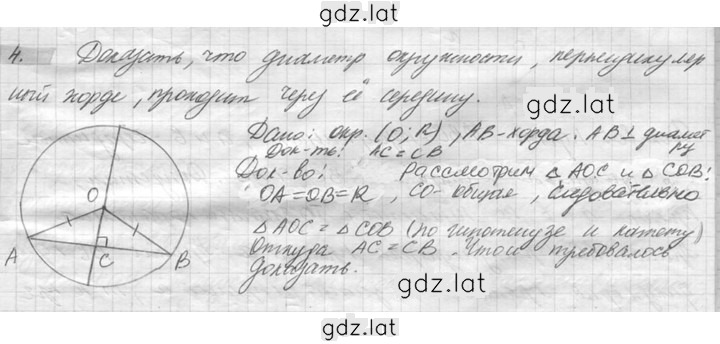 gdz.lat
4. Доказать, что диаметр окружности, перпендикуляр
ный хорде, проходит через её середину.
gdz.lat
Дано: окр. (О; R), АВ-хорда. АВ⊥ диамет
ру
Док-ть: АС=СВ
Док-во: Рассмотрим △ АОС и △ СОВ:
ОА=ОВ=R, СО-общая, следовательно
△ АОС = △ СОВ (по гипотенузе и катету)
Откуда АС=СВ. Что и требовалось
доказать.
О
А
С
В
gdz.lat
gdz.lat